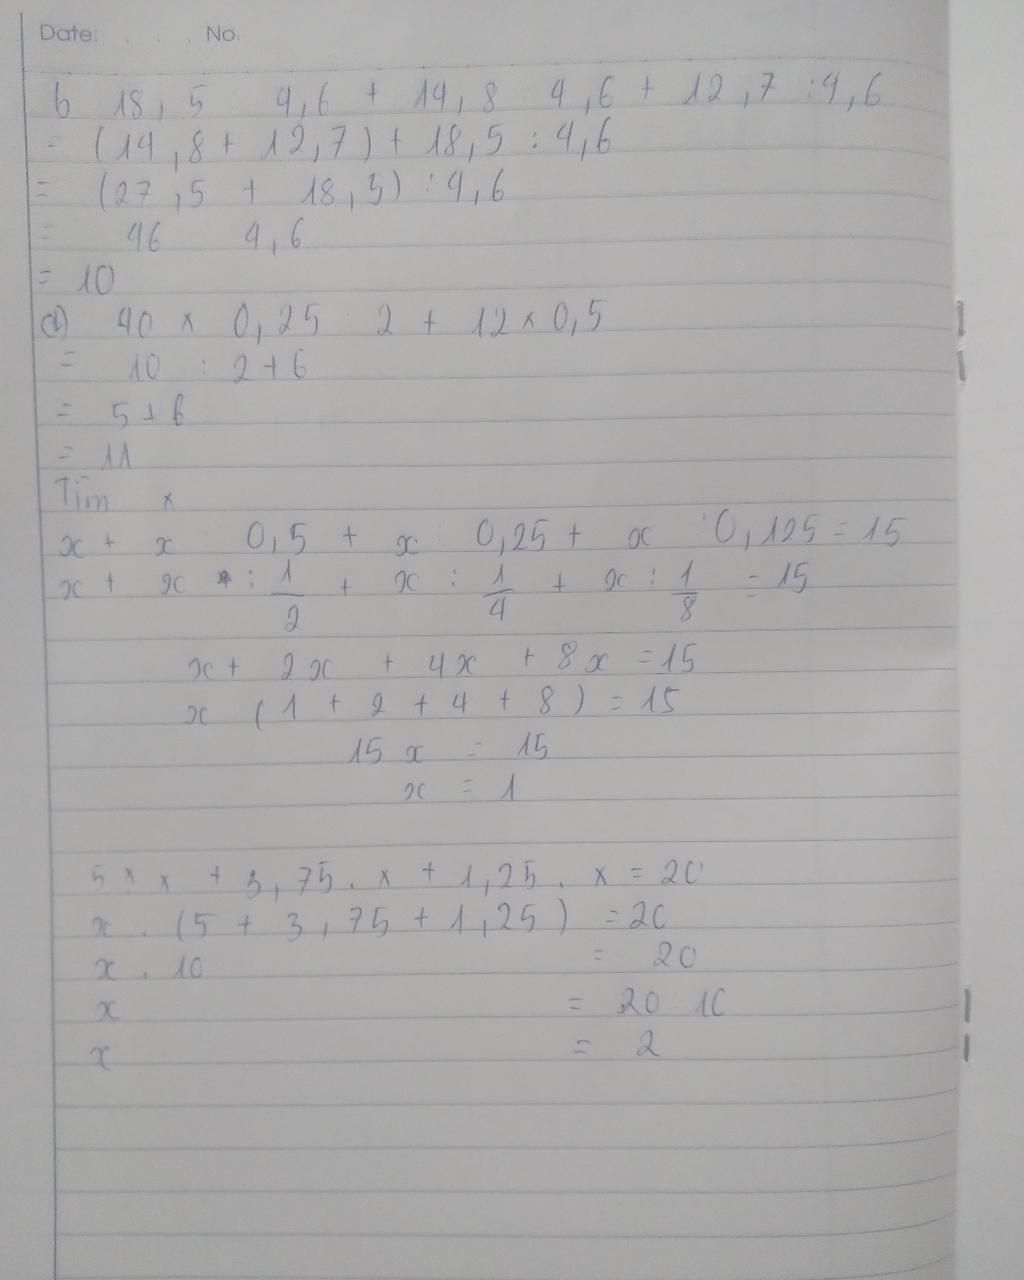 Date: . . . No.
b 18,5 4,6 + 14,8 : 4,6 + 12,7 : 4,6
= (14,8 + 12,7) + 18,5 : 4,6
= (27,5 + 18,5) : 4,6
= 46 4,6
= 10
d) 40 x 0,25 2 + 12 x 0,5
= 10 : 2 + 6
= 5 + 6
= 11
Tìm x
x + x 0,5 + x 0,25 + x : 0,125 = 15
x + x : 1/2 + x : 1/4 + x : 1/8 = 15
x + 2x + 4x + 8x = 15
x (1 + 2 + 4 + 8) = 15
15 x = 15
x = 1
5 x x + 3,75 . x + 1,25 . x = 20
x . (5 + 3,75 + 1,25) = 20
x . 10 = 20
x = 20 10
x = 2